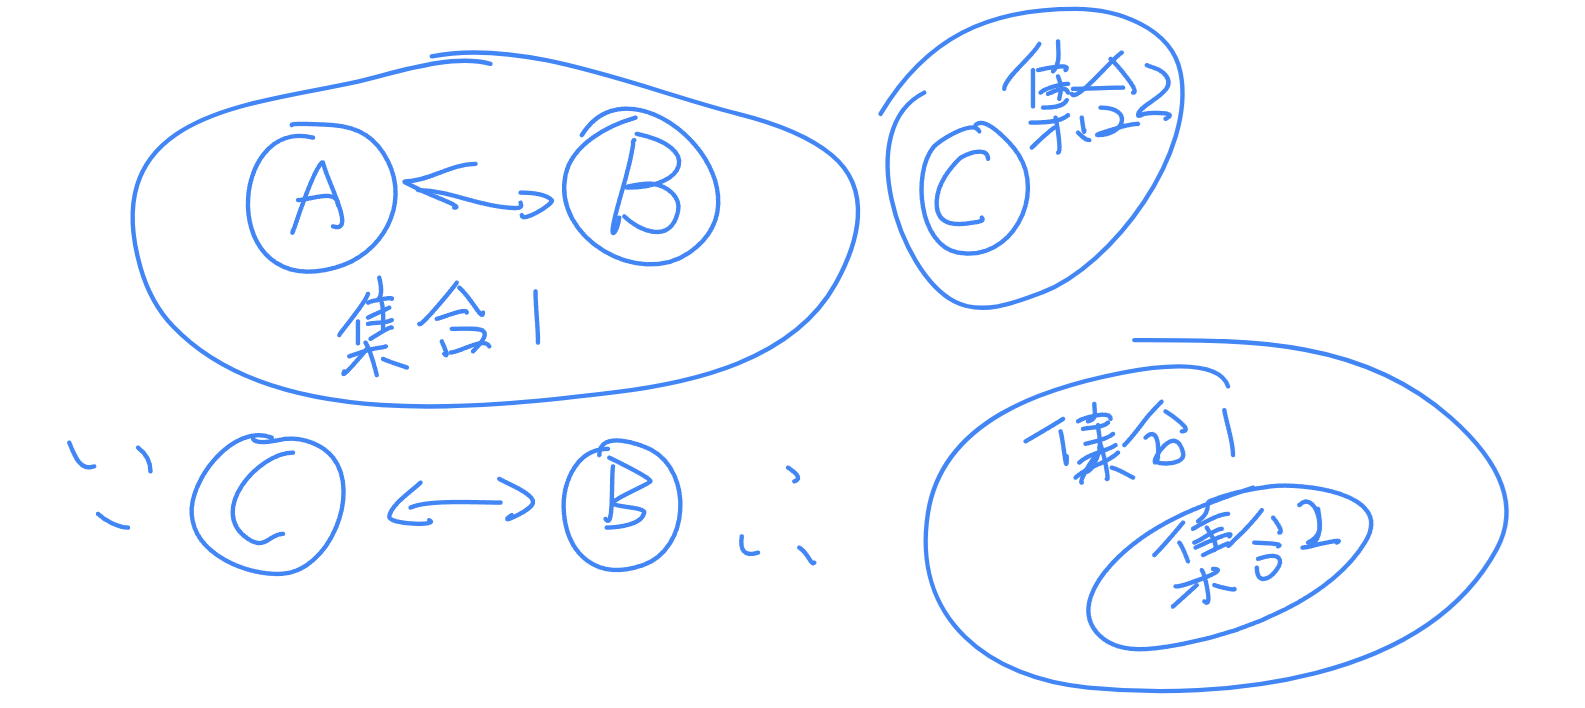 A
B
集合1
C
集合2
C
B
集合1
集合2